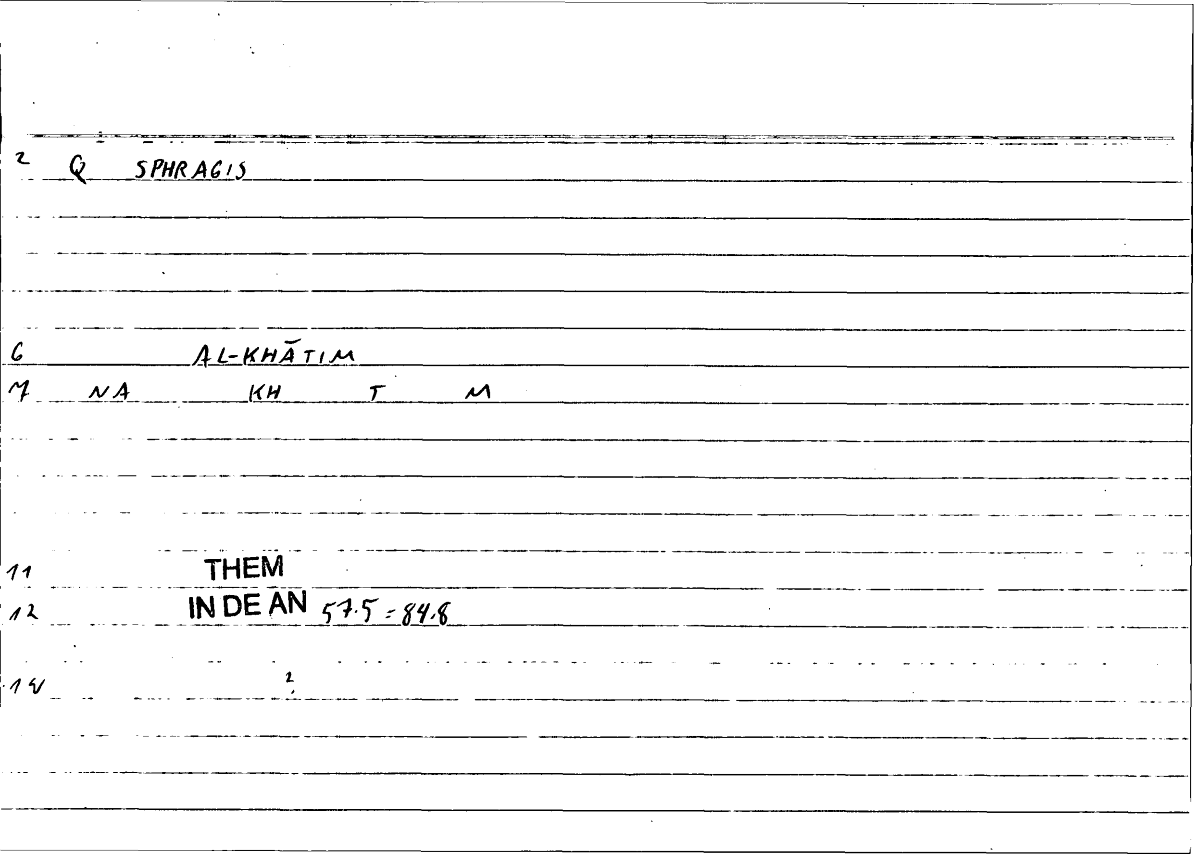 2 Q SPHRAGIS
6 AL-KHĀTIM
7 NA KH T M
11 THEM
12 IN DE AN 57.5 = 84.8
14 2